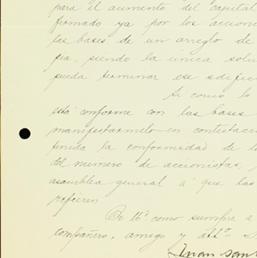 para el aumento del capital
firmado ya por los accione
las bases de un arreglo de
pia, siendo la única solu
pueda terminar ese edific
Si como lo
está conforme con las bases
manifestarmelo en contestaci
tenida la conformidad de l
del número de accionistas,
asamblea general a que las
refieren
De Vd. como siempre a
compañero, amigo y
Juan San